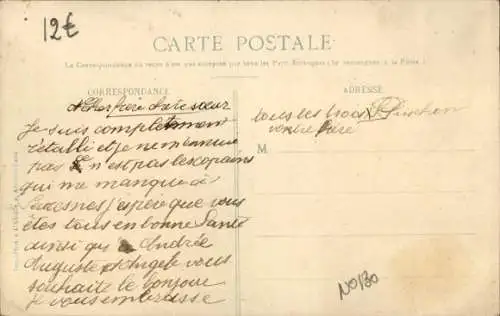 12€
CARTE POSTALE
La Correspondance au recto n'est pas acceptée par tous les Pays Étrangers (Se renseigner à la Poste)
CORRESPONDANCE
ADRESSE
Cher frère chère sœur
Je suis completement
rétabli et je ne m'ennuie
pas ce n'est pas les copains
qui me manque à
j'espère que vous
êtes tous en bonne Santé
ainsi que Andrée
Auguste et Angele vous
souhaite le bonjour
Je vous embrasse
tous les trois
votre frère
M
NO130